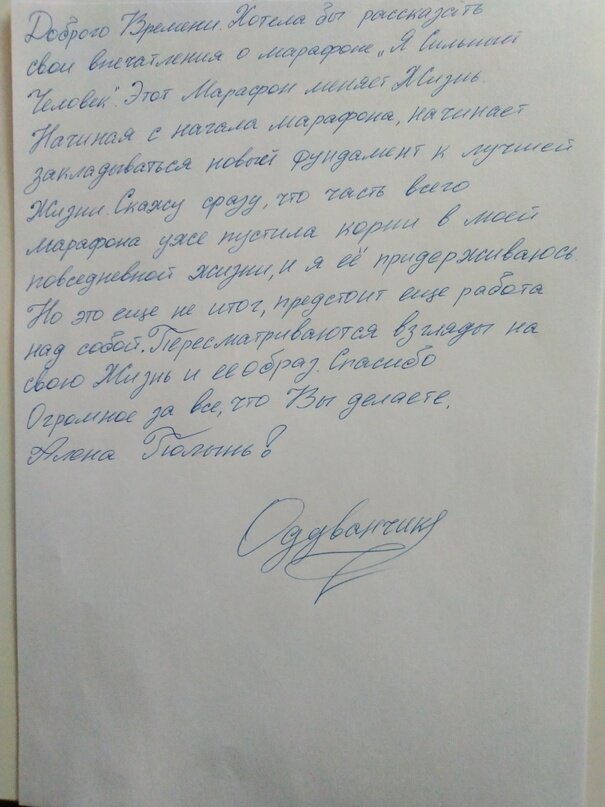 Доброго Времени. Хотела бы рассказать
свои впечатления о марафоне „Я Сильный
Человек". Этот Марафон меняет Жизнь.
Начиная с начала марафона, начинает
закладываться новый фундамент к лучшей
Жизни. Скажу сразу, что часть всего
марафона уже пустила корни в моей
повседневной жизни, и я её придерживаюсь.
Но это еще не итог, предстоит еще работа
над собой. Пересматриваются взгляды на
свою Жизнь и ее образ. Спасибо
Огромное за все, что Вы делаете,
Алена Полынь!
Одуванчик